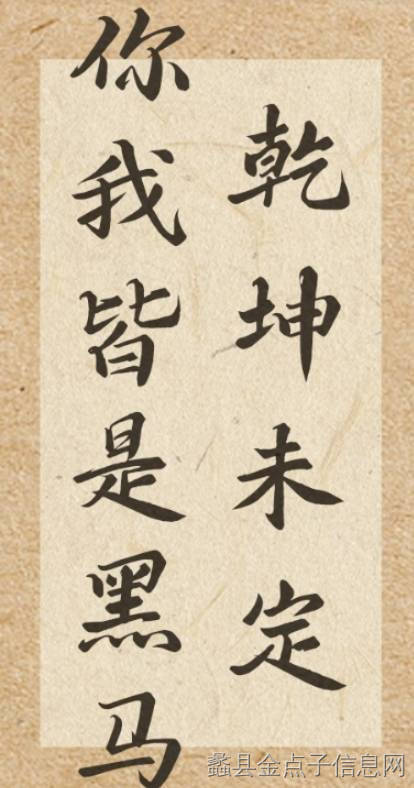 乾坤未定
你我皆是黑马
蠡县金点子信息网